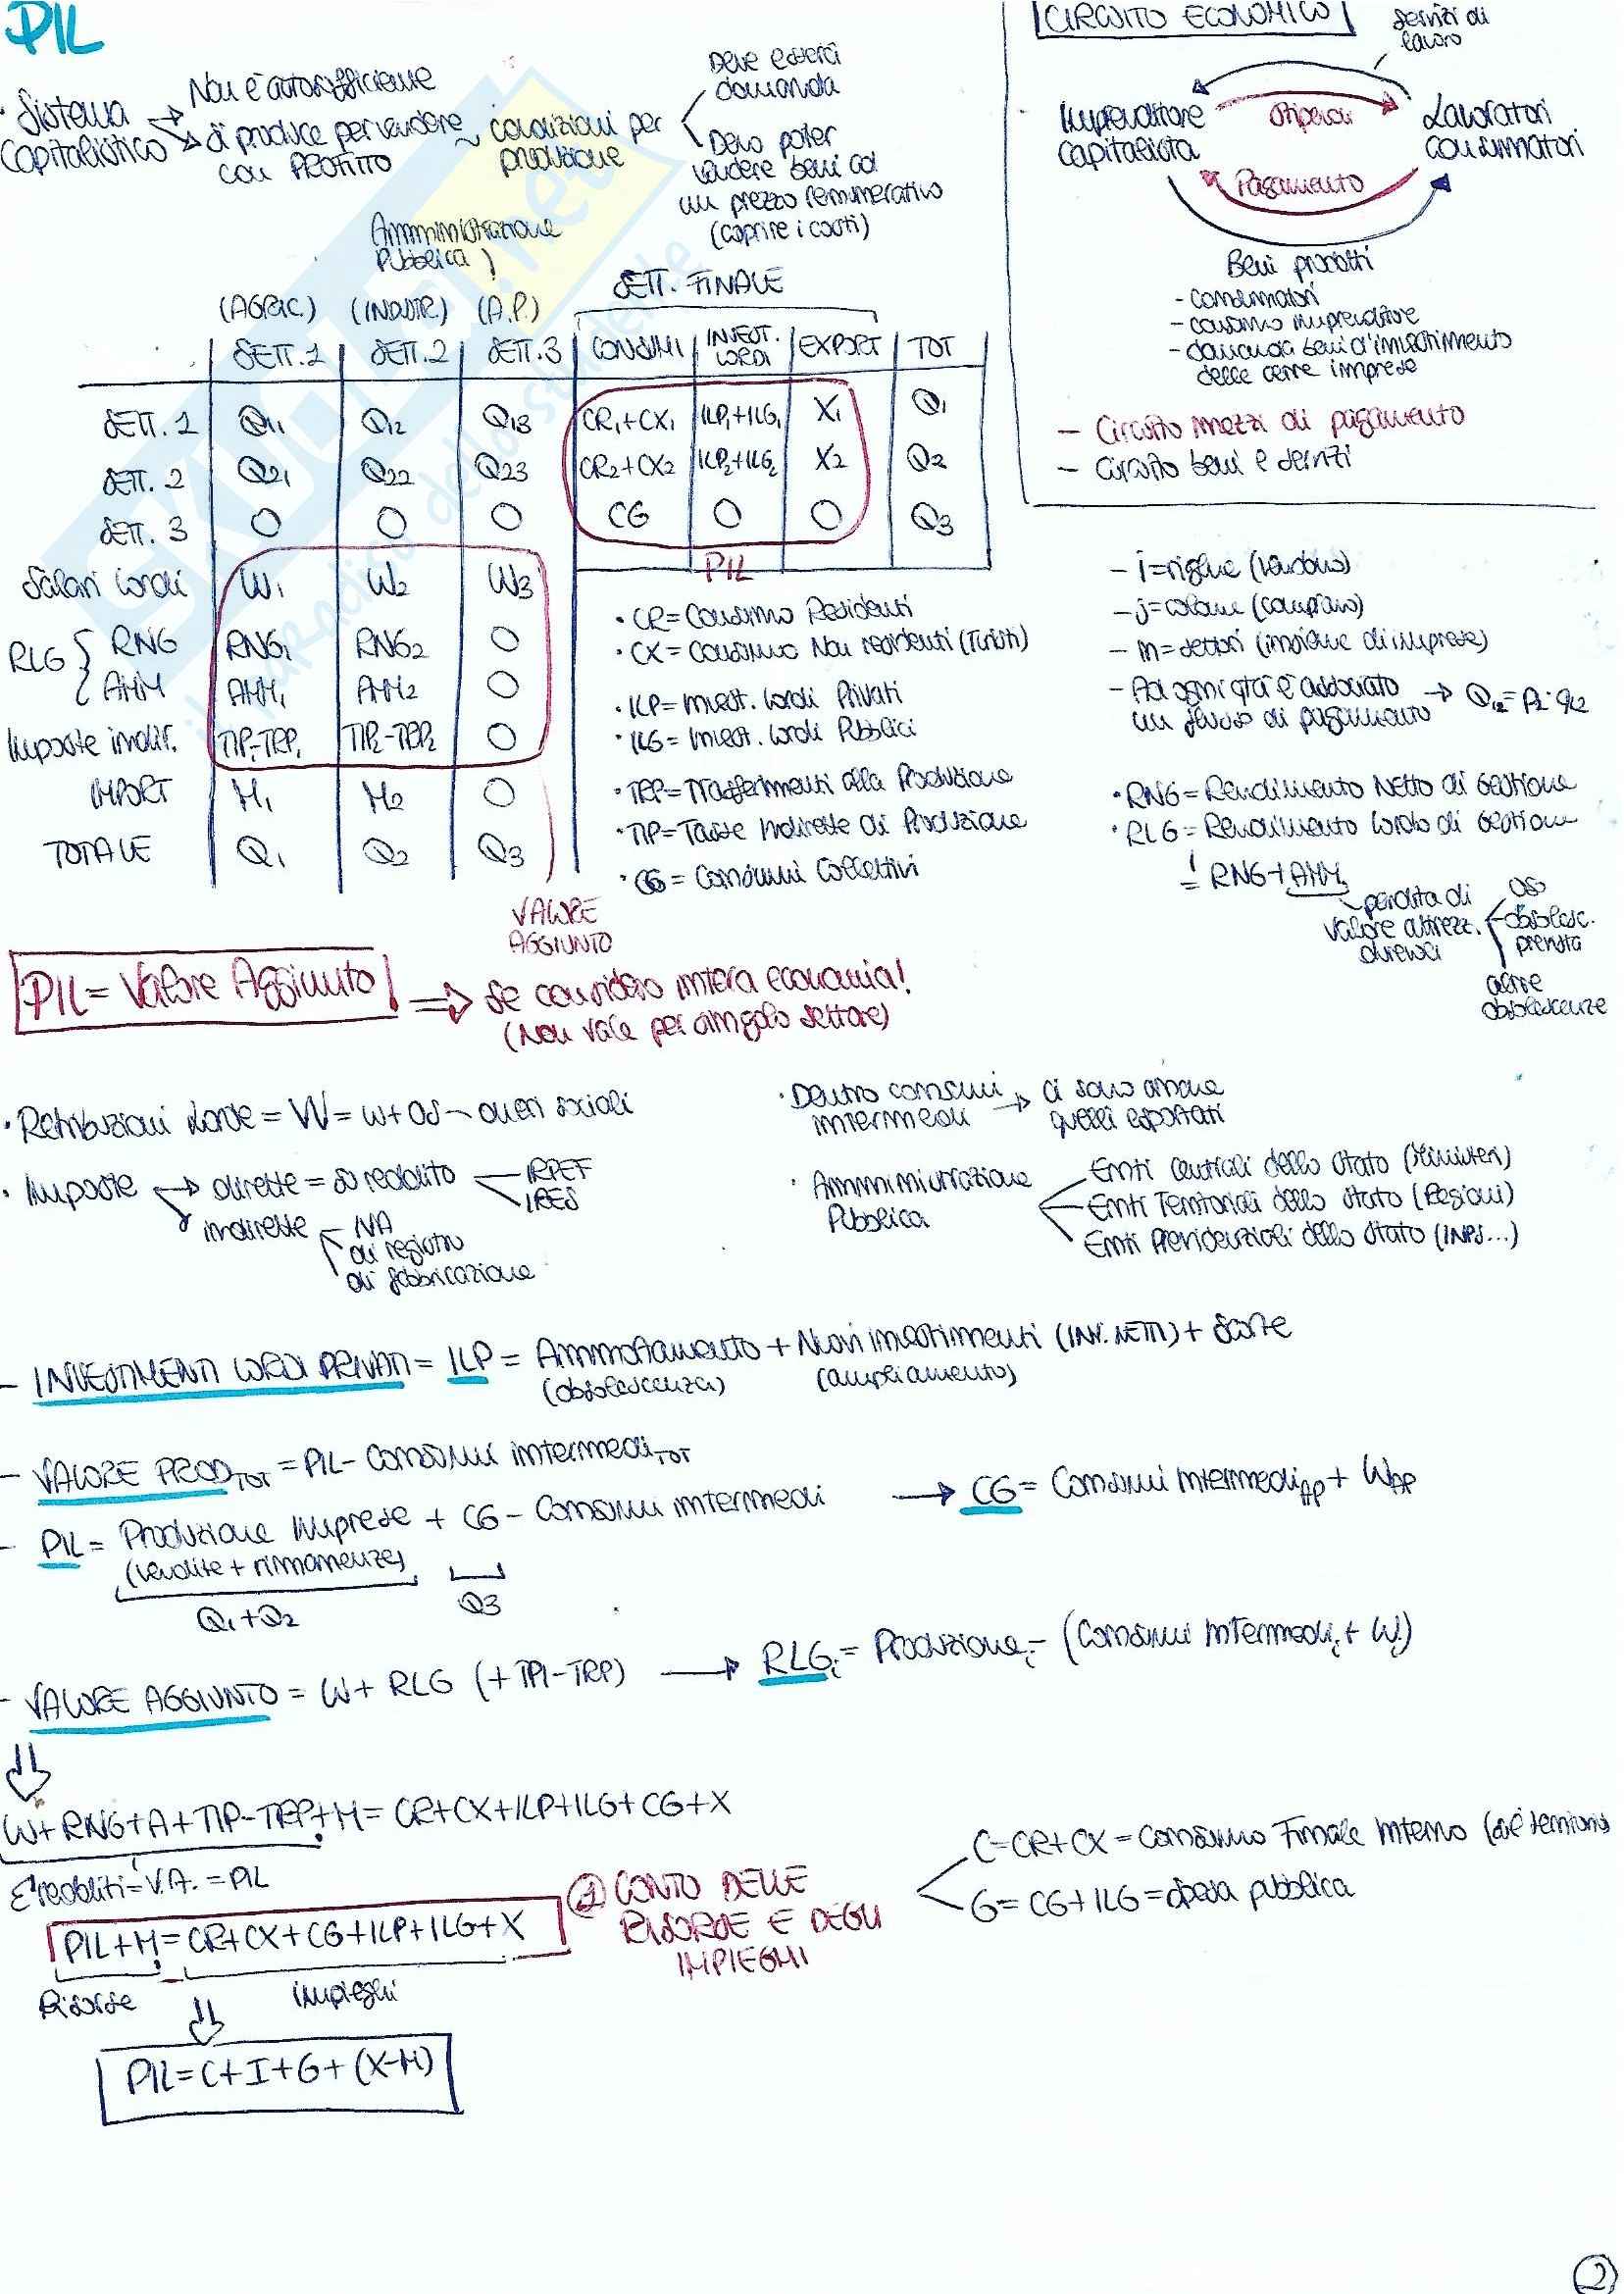 PIL
· Sistema Capitalistico
Non è autosufficiente
Si produce per vendere con PROFITTO
condizioni per produzione
Deve esserci domanda
Devo poter vendere beni ad un prezzo remunerativo (coprire i costi)
CIRCUITO ECONOMICO
Servizi di lavoro
Imprenditore Capitalista
Stipendi
Lavoratori Consumatori
Pagamento
Beni prodotti
- consumatori
- consumo imprenditore
- domanda beni d'investimento delle altre imprese
- Circuito mezzi di pagamento
- Circuito beni e servizi
Amministrazione Pubblica
SETT. FINALE
(AGRIC.) (INDUSTR.) (A.P.)
SETT. 1 SETT. 2 SETT. 3 CONSUMI INVEST. LORDI EXPORT TOT
SETT. 1 Q11 Q12 Q13 CR1+CX1 ILP1+ILG1 X1 Q1
SETT. 2 Q21 Q22 Q23 CR2+CX2 ILP2+ILG2 X2 Q2
SETT. 3 0 0 0 CG 0 0 Q3
PIL
Salari lordi W1 W2 W3
RLG { RNG RNG1 RNG2 0
AMM AMM1 AMM2 0
Imposte indir. TIP1-TRP1 TIP2-TRP2 0
IMPORT M1 M2 0
TOTALE Q1 Q2 Q3
VALORE AGGIUNTO
· CR = Consumo Residenti
· CX = Consumo Non residenti (Turisti)
· ILP = Invest. Lordi Privati
· ILG = Invest. Lordi Pubblici
· TRP = Trasferimenti alla Produzione
· TIP = Tasse Indirette di Produzione
· CG = Consumi Collettivi
- i = righe (vendono)
- j = colonne (comprano)
- m = settori (insieme di imprese)
- Ad ogni qtà è associato un flusso di pagamento → Q12 = P2 · q12
· RNG = Rendimento Netto di Gestione
· RLG = Rendimento Lordo di Gestione
= RNG + AMM
perdita di valore attrezz. durevoli
uso
obsolesc. prevista
altre obsolescenze
PIL = Valore Aggiunto!
⇒ Se considero intera economia!
(Non vale per singolo settore)
· Retribuzioni Lorde = W = w + OS - oneri sociali
· Imposte → dirette = su reddito IRPEF IRES
indirette IVA
di registro
di fabbricazione
· Dentro consumi intermedi → ci sono anche quelli esportati
· Amministrazione Pubblica
Enti Centrali dello Stato (Ministeri)
Enti Territoriali dello Stato (Regioni)
Enti Previdenziali dello Stato (INPS...)
- INVESTIMENTI LORDI PRIVATI = ILP = Ammortamento + Nuovi investimenti (INV. NETTI) + Scorte
(obsolescenza) (ampliamento)
- VALORE PROD TOT = PIL - Consumi intermedi TOT
- PIL = Produzione Imprese + CG - Consumi intermedi → CG = Consumi Intermedi AP + W AP
(vendite + rimanenze)
Q1+Q2 Q3
- VALORE AGGIUNTO = W + RLG (+ TPI - TRP) → RLGi = Produzione i - (Consumi Intermedi i + Wi)
W+RNG+A+TIP-TRP+M = CR+CX+ILP+ILG+CG+X
È redditi = V.A. = PIL
PIL+M = CR+CX+CG+ILP+ILG+X
Risorse Impieghi
CONTO DELLE RISORSE E DEGLI IMPIEGHI
C = CR+CX = Consumo Finale Interno
G = CG+ILG = spesa pubblica
PIL = C+I+G+(X-M)
2